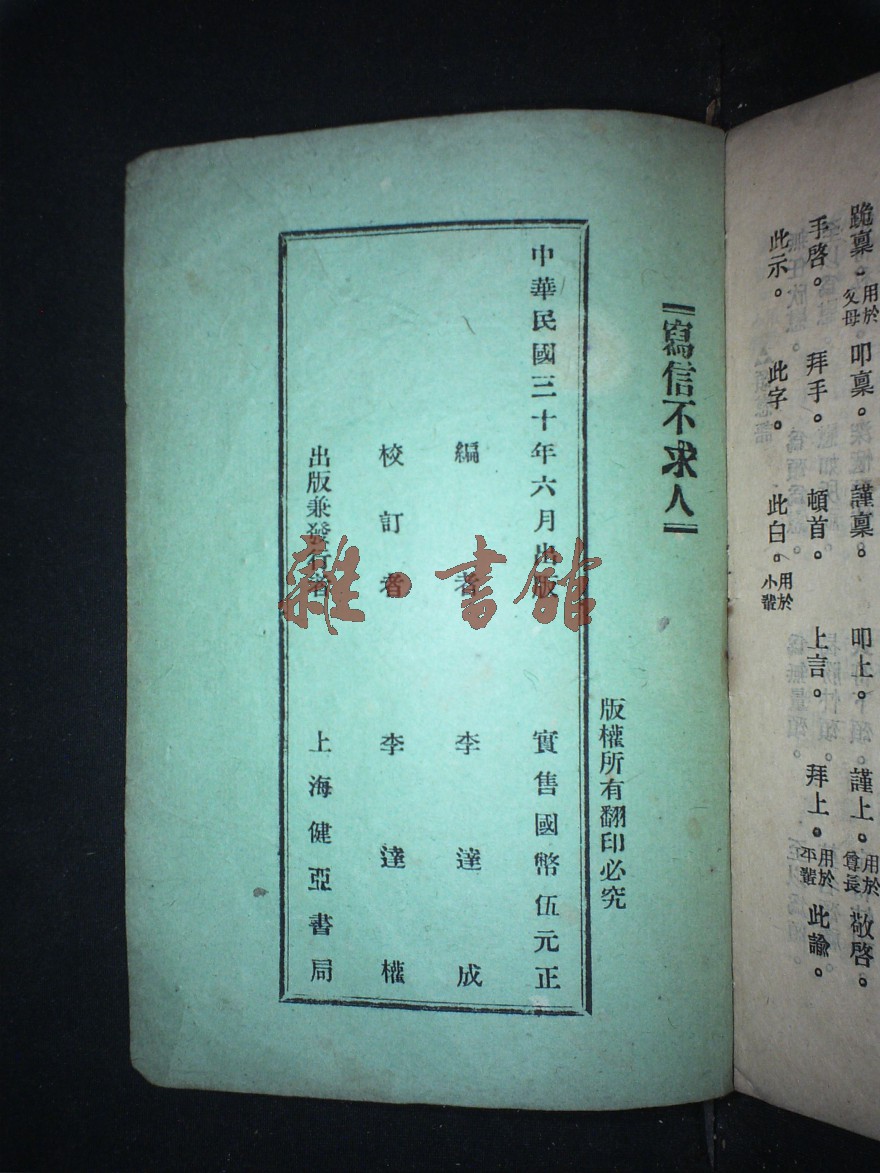 跪稟。用於父母叩稟。謹稟。叩上。謹上。用於尊長敬啓。
手啓。拜手。頓首。上言。拜上。用於平輩此諭。
此示。此字。此白。用於小輩
寫信不求人
版權所有翻印必究
中華民國三十年六月出版 實售國幣伍元正
編者 李達成
校訂者 李達權
出版兼發行者 上海健亞書局
雜·書館